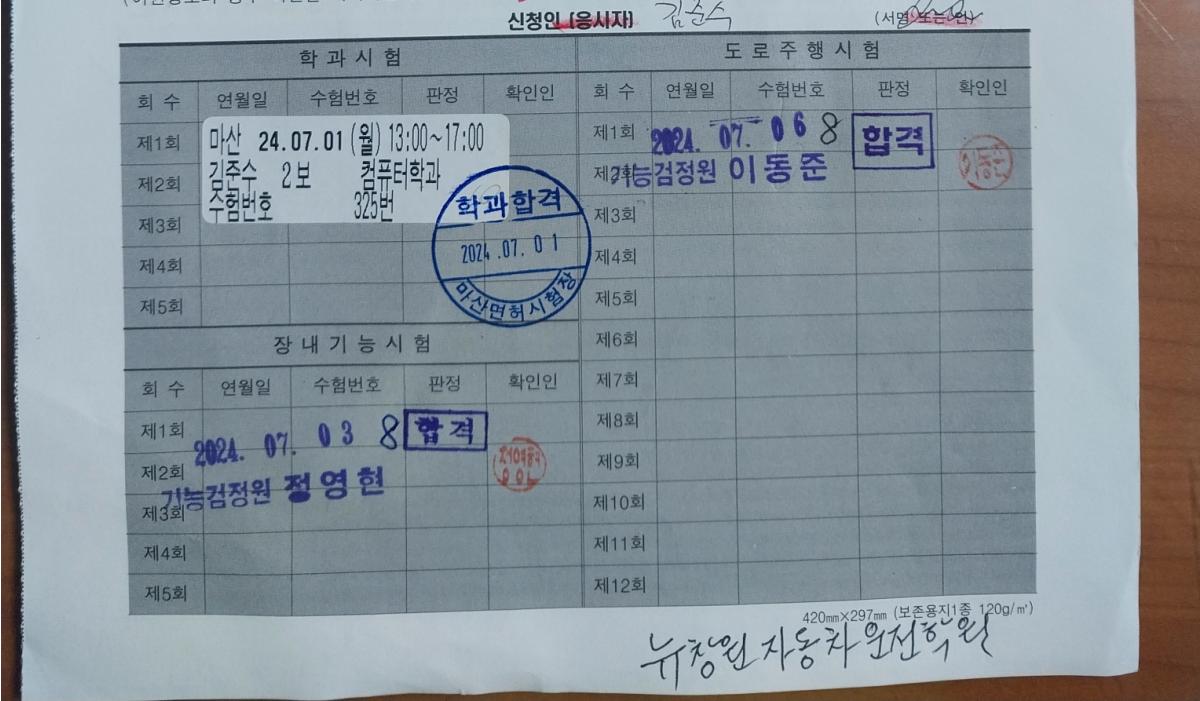 신청인 (응시자) 김준수 (서명 또는 인)
학 과 시 험
회 수 연월일 수험번호 판정 확인인
제1회
제2회
제3회
제4회
제5회
마산 24.07.01 (월) 13:00~17:00
김준수 2보 컴퓨터학과
수험번호 325번
학과합격
2024.07.01
마산면허시험장
장 내 기 능 시 험
회 수 연월일 수험번호 판정 확인인
제1회
2024. 07. 03 8 합격
제2회
기능검정원 정영현
제3회
제4회
제5회
도 로 주 행 시 험
회 수 연월일 수험번호 판정 확인인
제1회 2024. 07. 06 8 합격
제2회 기능검정원 이동준
이동준
제3회
제4회
제5회
제6회
제7회
제8회
제9회
제10회
제11회
제12회
420㎜×297㎜ (보존용지1종 120g/㎡)
뉴창원 자동차 운전학원